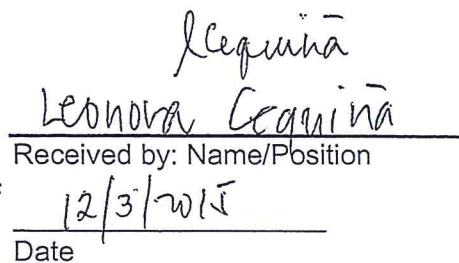 lcequiñā
Leonora Cequiña
Received by: Name/Position
12/3/2015
Date